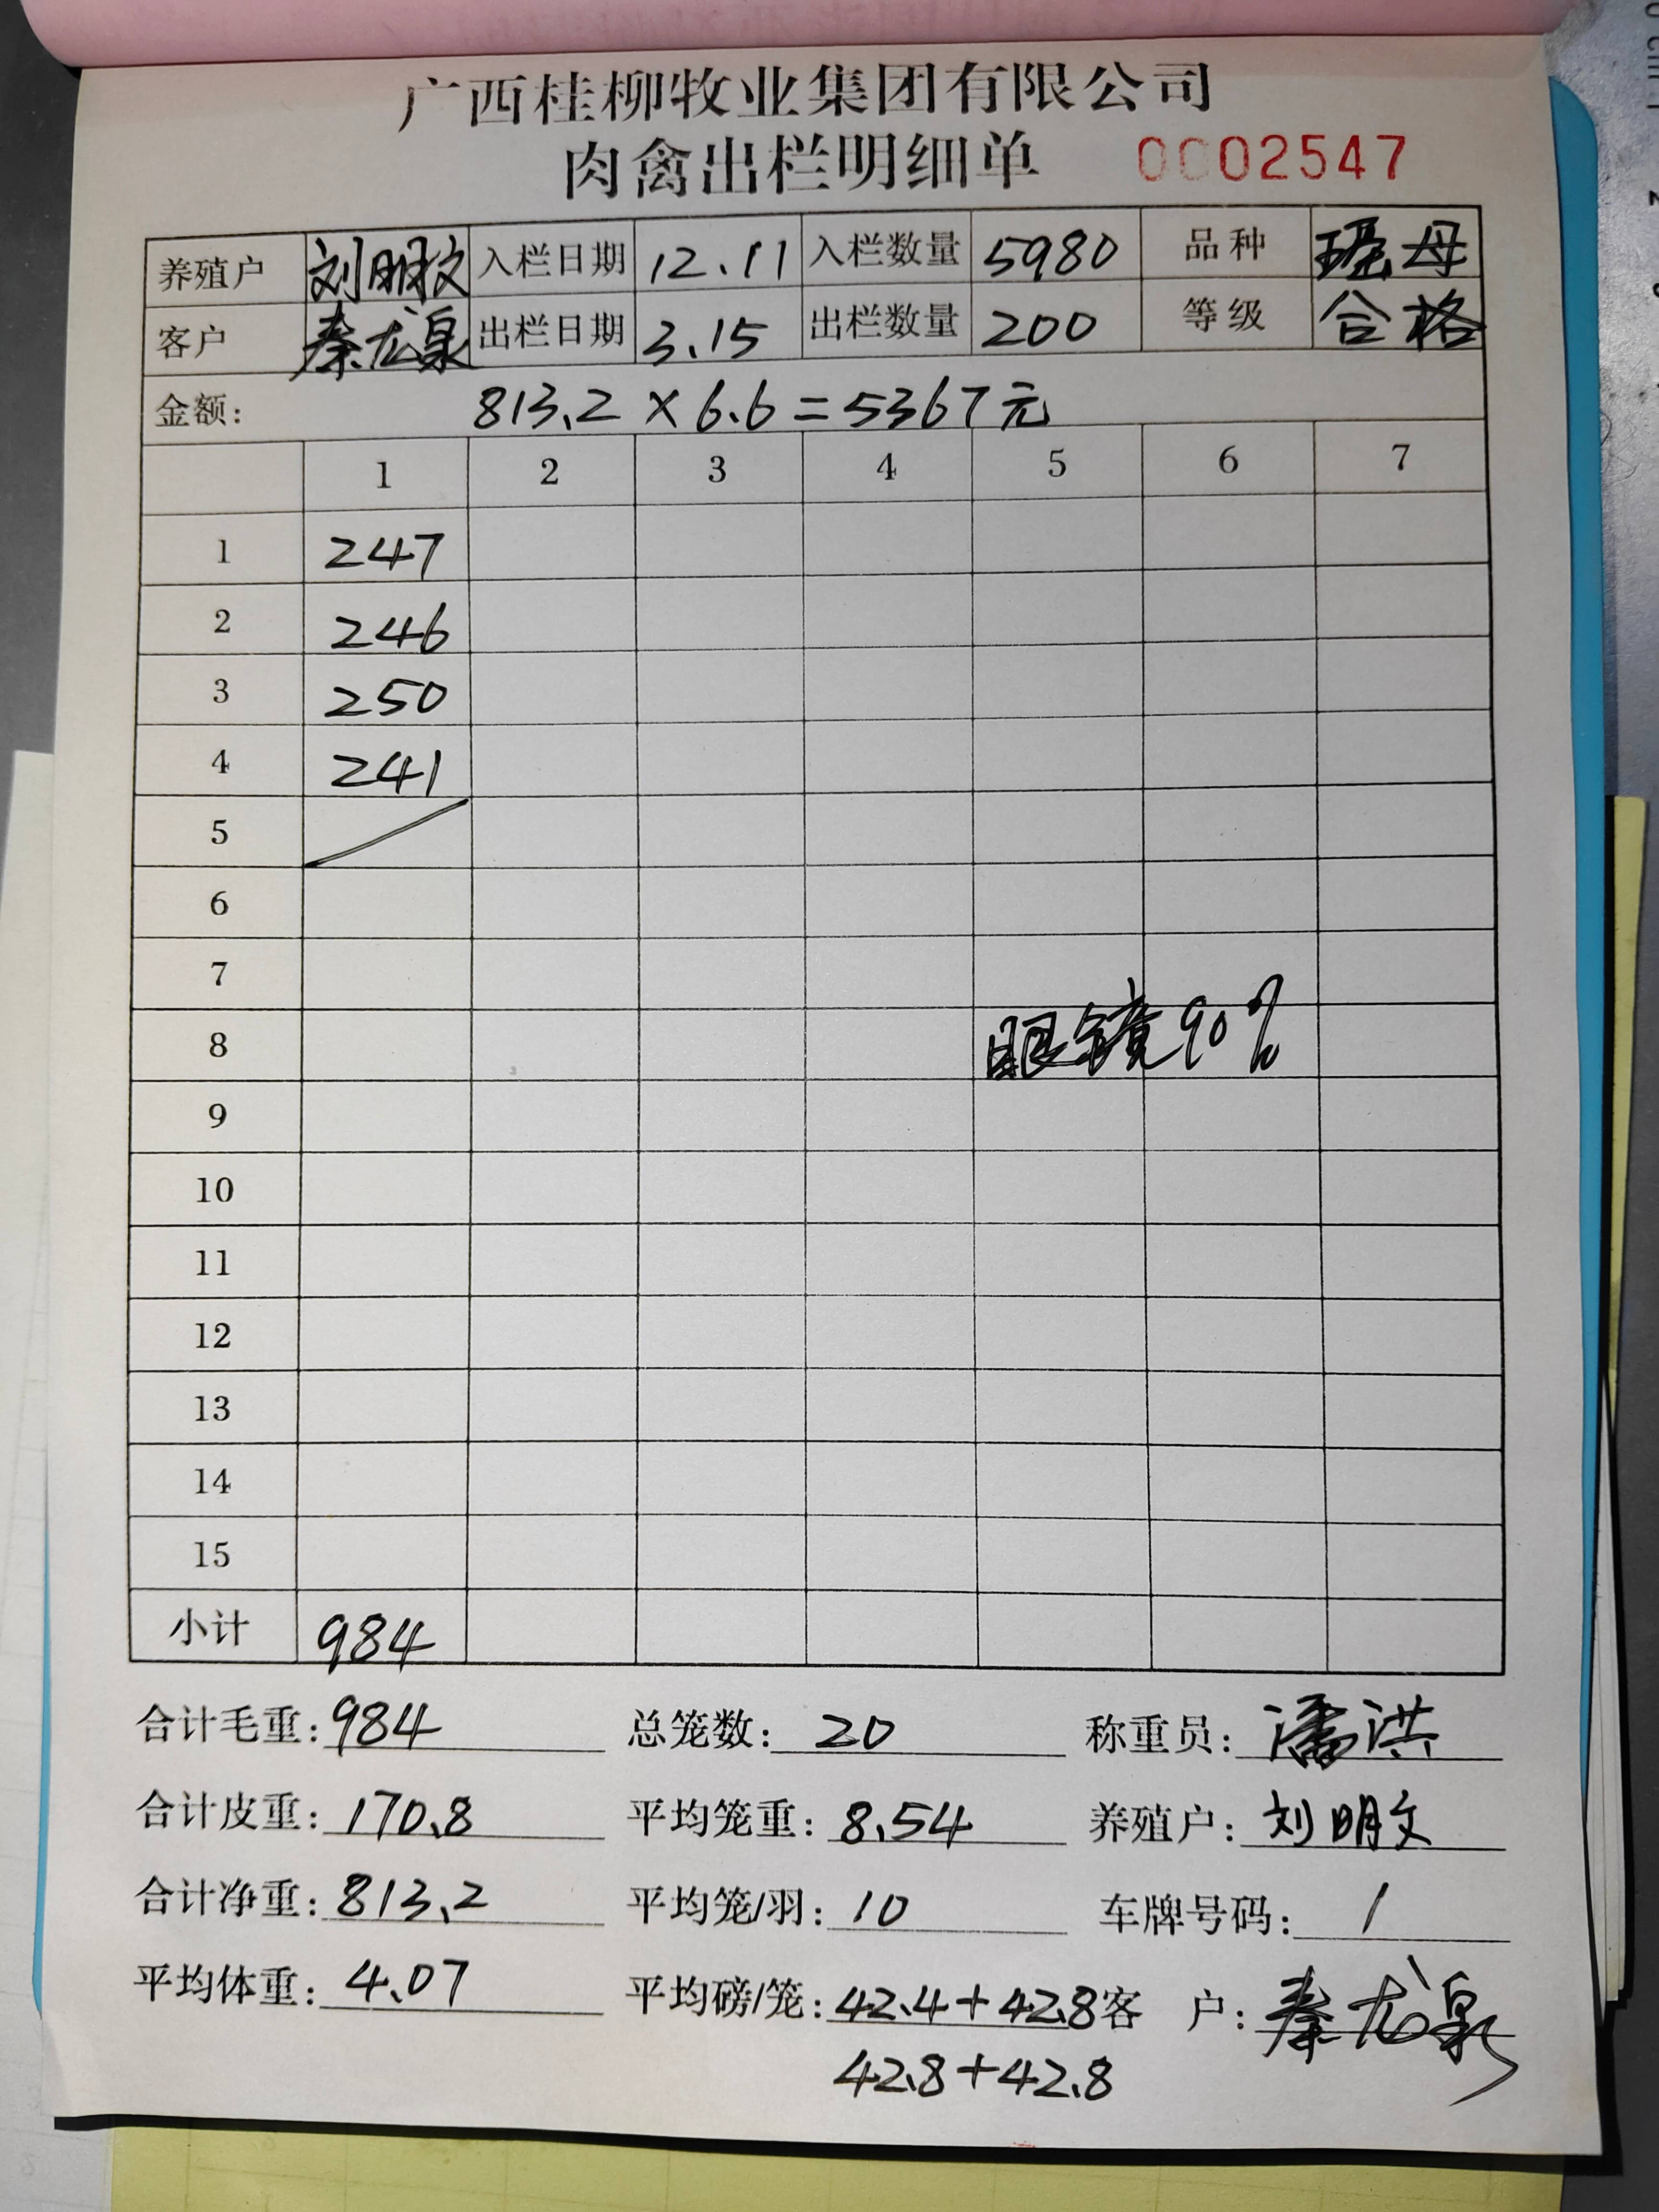 广西桂柳牧业集团有限公司
肉禽出栏明细单 0002547
养殖户 刘明文 入栏日期 12.11 入栏数量 5980 品种 瑶母
客户 秦龙泉 出栏日期 3.15 出栏数量 200 等级 合格
金额: 813.2×6.6=5367元
1 2 3 4 5 6 7
1 247
2 246
3 250
4 241
5
6
7
8 眼镜90%
9
10
11
12
13
14
15
小计 984
合计毛重:984 总笼数:20 称重员:潘洪
合计皮重:170.8 平均笼重:8.54 养殖户:刘明文
合计净重:813.2 平均笼/羽:10 车牌号码:/
平均体重:4.07 平均磅/笼:42.4+42.8 客户:秦龙泉
42.8+42.8